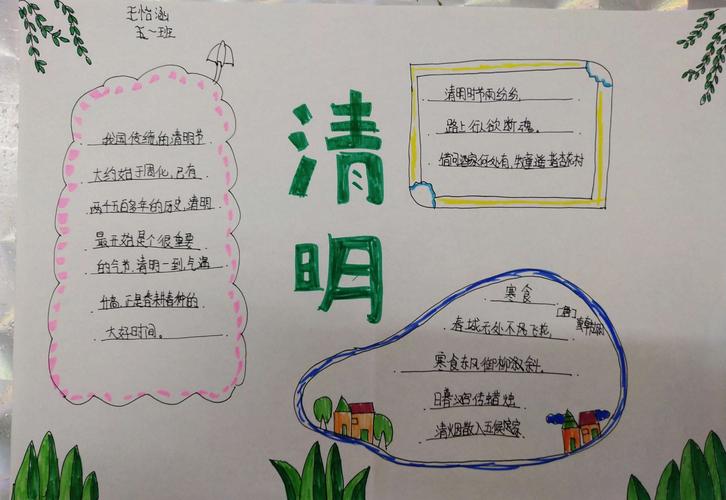 王怡涵
五一班
我国传统的清明节
大约始于周代,已有
两千五百多年的历史,清明
最开始是个很重要
的气节,清明一到,气温
升高,正是春耕春种的
大好时间。
清明
清明时节雨纷纷,
路上行人欲断魂。
借问酒家何处有,牧童遥指杏花村
寒食
春城无处不飞花,
寒食东风御柳斜。
日暮汉宫传蜡烛
轻烟散入五侯家